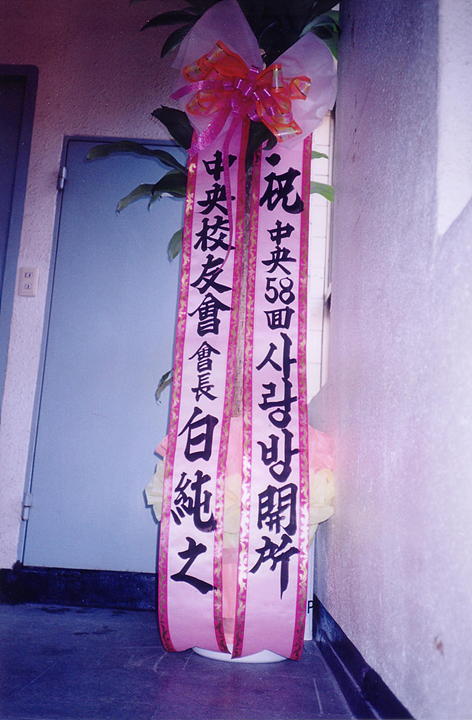 祝 中央58回 사랑방 開所
中央校友會 會長 白純之
P